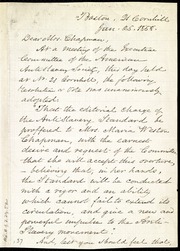 Boston, 21 Cornhill
Jan. 25. 1858.
Dear Mrs. Chapman,
At a meeting of the Executive
Committee of the American
Anti-Slavery Society, this day held
at No. 21 Cornhill, the following
Resolution & Vote was unanimously
adopted:
That the editorial charge of
the Anti-Slavery Standard be
proffered to Mrs. Maria Weston
Chapman, with the earnest
desire and request of the Committee
that she will accept this overture,
—believing that, in her hands,
the Standard will be conducted
with a vigor and an ability
which cannot fail to extend its
circulation, and give a new and
powerful impulse to the Anti-
Slavery movement.
And, lest you should feel that